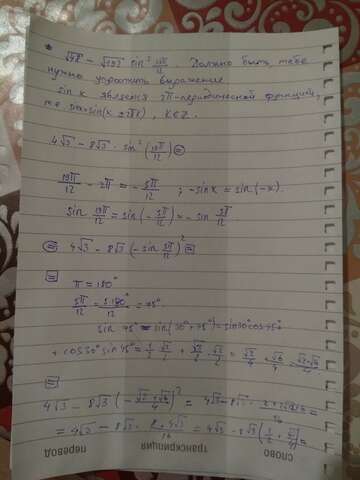 * √48 - √192 sin² 19π/12. Должно быть, тебе
нужно упростить выражение
sin x является 2π-периодической функцией,
то sin x = sin(x ± 2πk), k∈Z.
4√3 - 8√3 · sin² (19π/12) =
19π/12 - 2π = - 5π/12 ; -sin x = sin(-x).
sin 19π/12 = sin(- 5π/12) = - sin 5π/12
= 4√3 - 8√3 (- sin 5π/12)² =
=
π = 180°
5π/12 = 5·180°/12 = 75°
sin 75° = sin(30° + 45°) = sin30°cos45°
+ cos30° sin45° = 1/2 · √2/2 + √3/2 · √2/2 = √2/4 + √6/4 =
=
4√3 - 8√3 (- √2+√6/4)² = 4√3 - 8√3 ·
= 4√3 - 8√3 · 8+4√3/16 = 4√3 - 8√3 (1/2 + √3/4) =
перевод транскрипция слово